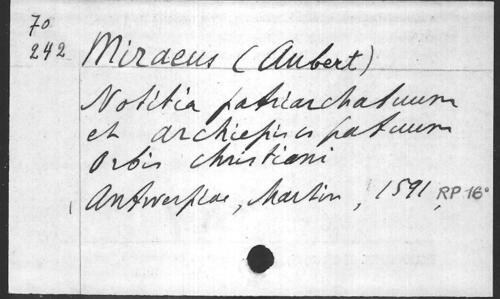 70
242
Miraeus (Aubert)
Notitia patriarchatuum
et archiepiscopatuum
Orbis christiani
Antwerpiae, Martin, 1591, RP 16°